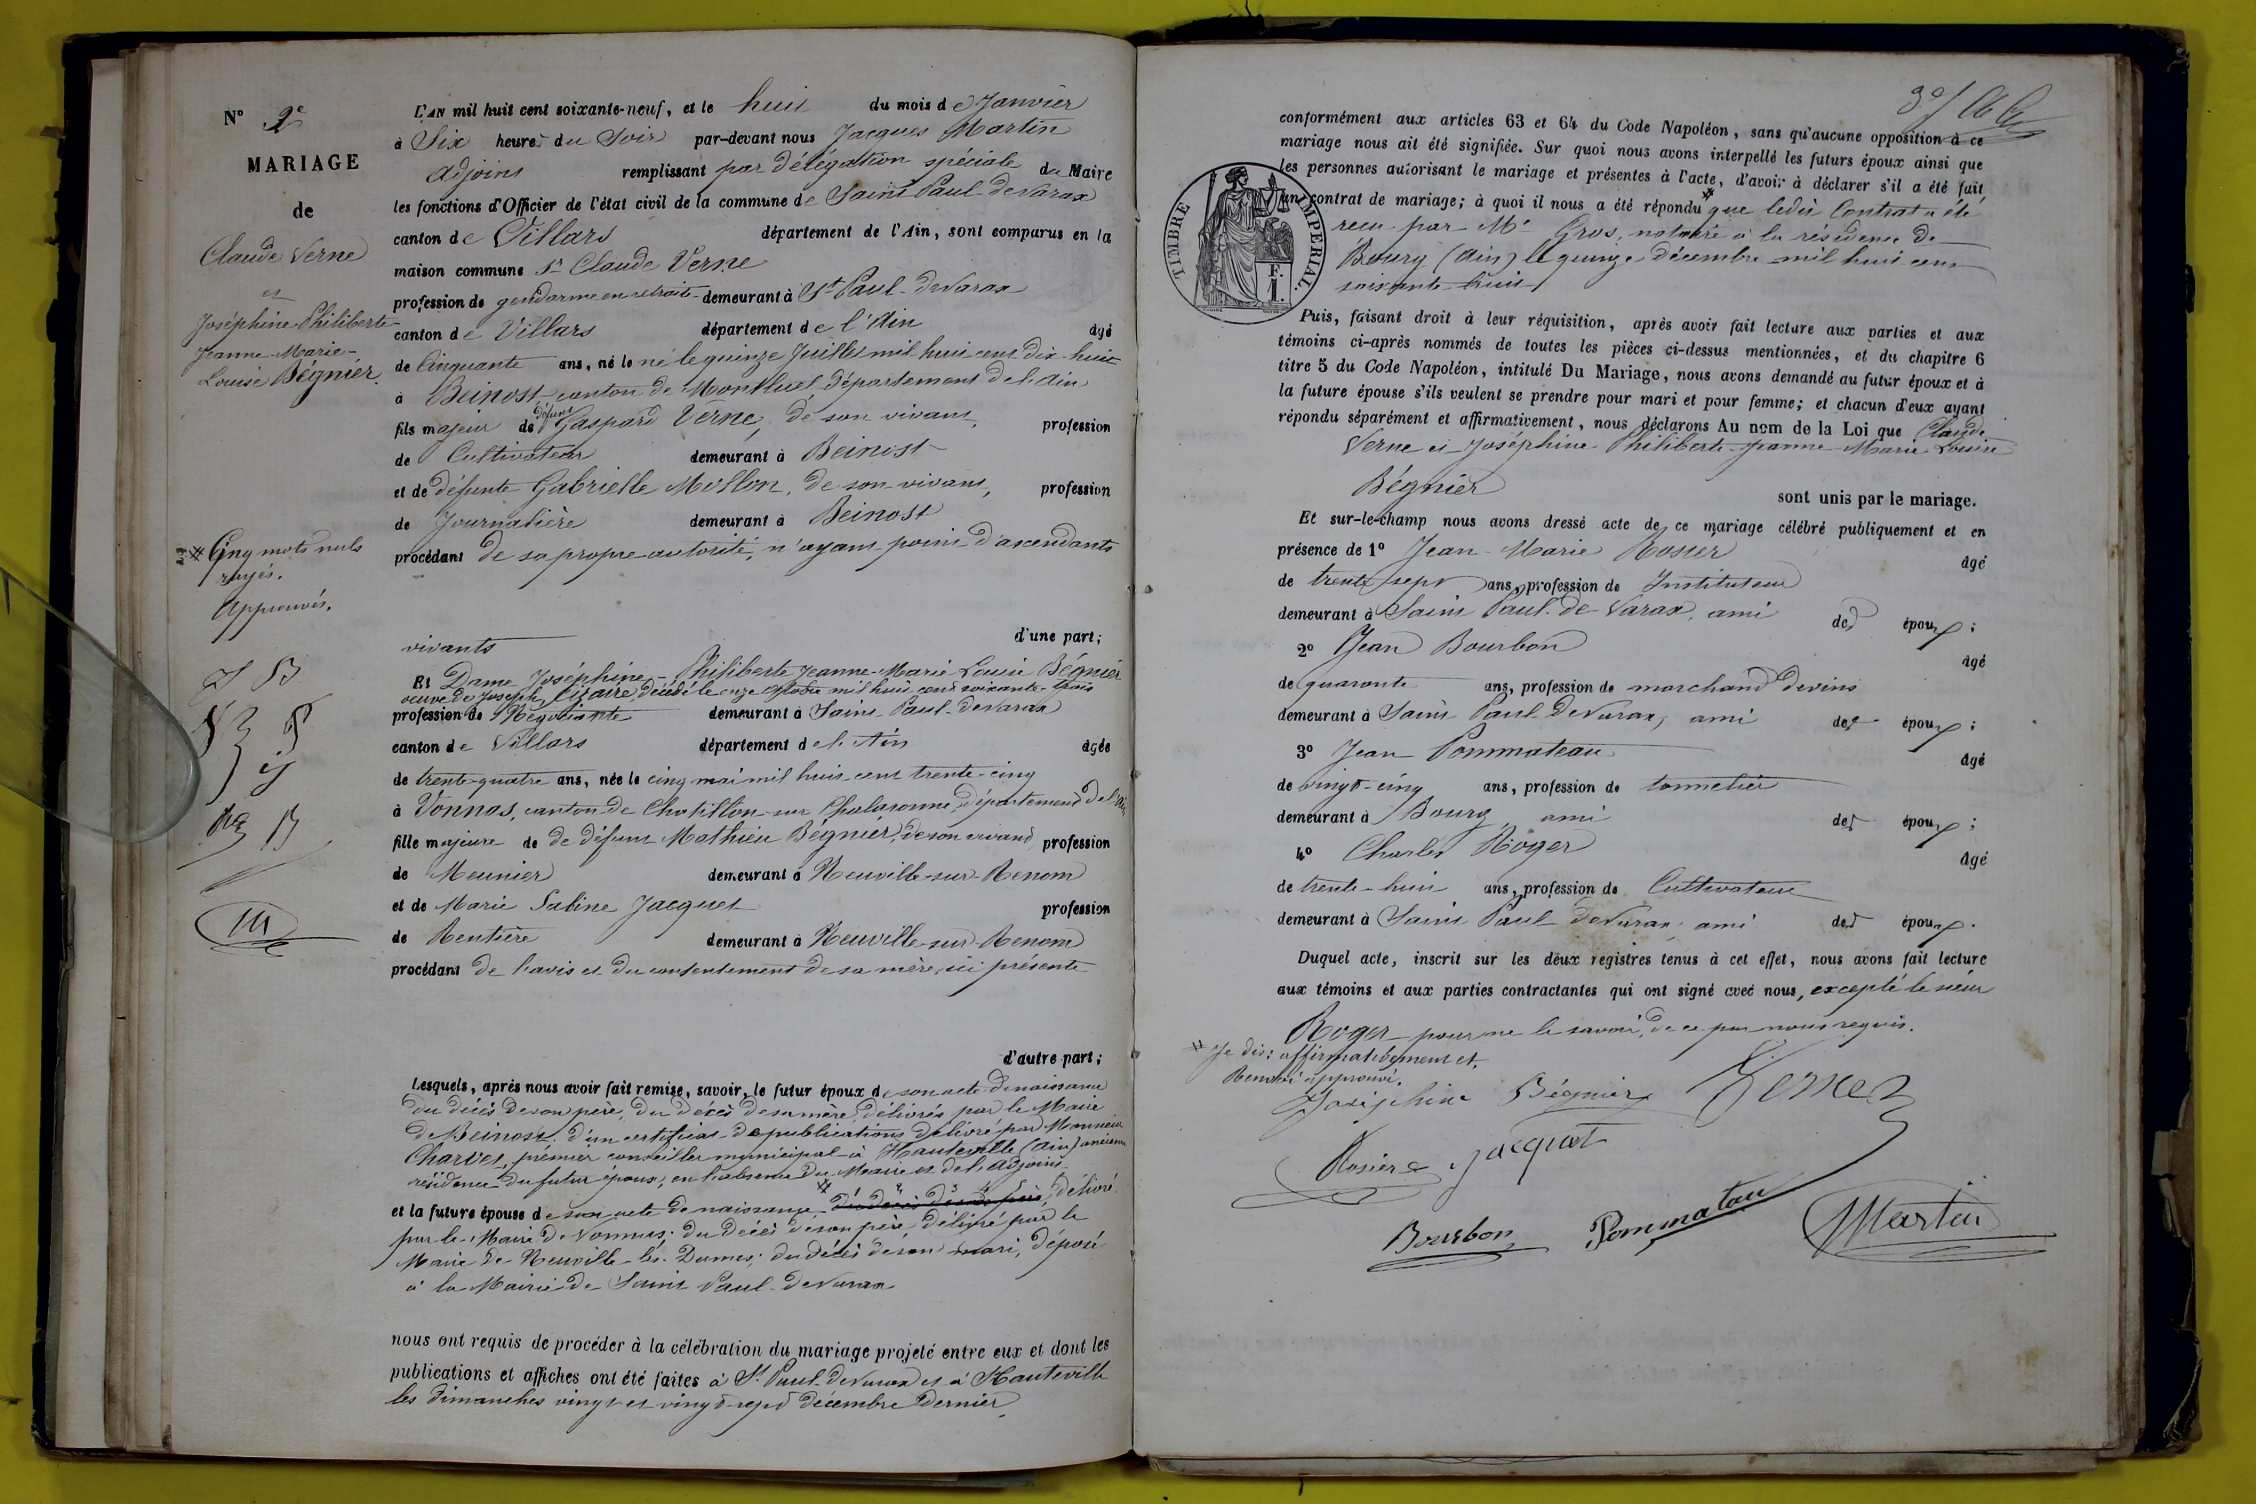 N° 2e
MARIAGE
de
Claude Verne
et
Joséphine Philiberte
Jeanne-Marie-
Louise Bégnier.
# Cinq mots nuls
rayés.
Approuvés.
J B
L'AN mil huit cent soixante-neuf, et le huit du mois de Janvier
à Six heures du Soir par-devant nous Jacques Martin
adjoint remplissant par délégation spéciale du Maire
les fonctions d'Officier de l'état civil de la commune de Saint Paul-de Varax
canton de Villars département de l'Ain, sont comparus en la
maison commune Sr Claude Verne
profession de gendarme en retraite demeurant à St Paul-de Varax
canton de Villars département de l'Ain âgé
de Cinquante ans, né le né le quinze Juillet mil huit cent dix-huit
à Beinost canton de Montluel, département de l'Ain
fils majeur de défunt Gaspard Verne, de son vivant, profession
de Cultivateur demeurant à Beinost
et de défunte Gabrielle Mollon, de son vivant, profession
de Journalière demeurant à Beinost
procédant de sa propre autorité, n'ayant point d'ascendants
vivants d'une part;
Et Dame Joséphine-Philiberte Jeanne-Marie Louise Bégnier
veuve de Joseph décédé le onze octobre mil huit cent soixante-trois
profession de Négociante demeurant à Saint-Paul-de Varax
canton de Villars département de l'Ain âgée
de trente-quatre ans, née le cinq mai mil huit cent trente-cinq
à Vonnas, canton de Chatillon-sur-Chalaronne, département de l'Ain
fille majeure de de défunt Mathieu Bégnier, de son vivant, profession
de Meunier demeurant à Neuville-sur-Renom
et de Marie Sabine Jacquet profession
de Rentière demeurant à Neuville-sur-Renom
procédant de l'avis et du consentement de sa mère ici présente
d'autre part;
Lesquels, après nous avoir fait remise, savoir, le futur époux de son acte de naissance
du décès de son père, du décès de sa mère, délivrés par le Maire
de Beinost, d'un certificat de publications délivré par Monsieur
Charvet, premier conseiller municipal à Hauteville (Ain) ancienne
résidence du futur époux, en l'absence du Maire et de l'adjoint
et la future épouse de son acte de naissance # du décès de son père, délivré
par le Maire de Vonnas; du décès de son père délivré par le
Maire de Neuville-les-Dames; du décès de son mari, déposé
à la Mairie de Saint Paul-de Varax
nous ont requis de procéder à la célébration du mariage projeté entre eux et dont les
publications et affiches ont été faites à St Paul-de Varax et à Hauteville
les dimanches vingt et vingt-sept décembre dernier,
conformément aux articles 63 et 64 du Code Napoléon, sans qu'aucune opposition à ce
mariage nous ait été signifiée. Sur quoi nous avons interpellé les futurs époux ainsi que
les personnes autorisant le mariage et présentes à l'acte, d'avoir à déclarer s'il a été fait
un contrat de mariage; à quoi il nous a été répondu # que ledit Contrat a été
reçu par Me Gros, notaire à la résidence de
Bourg (Ain) le quinze décembre mil huit cent
soixante-huit
TIMBRE IMPERIAL.
F.
1.
Puis, faisant droit à leur réquisition, après avoir fait lecture aux parties et aux
témoins ci-après nommés de toutes les pièces ci-dessus mentionnées, et du chapitre 6
titre 5 du Code Napoléon, intitulé Du Mariage, nous avons demandé au futur époux et à
la future épouse s'ils veulent se prendre pour mari et pour femme; et chacun d'eux ayant
répondu séparément et affirmativement, nous déclarons Au nom de la Loi que Claude
Verne et Joséphine Philiberte-Jeanne-Marie Louise
Bégnier sont unis par le mariage.
Et sur-le-champ nous avons dressé acte de ce mariage célébré publiquement et en
présence de 1° Jean-Marie Rosier âgé
de trente sept ans, profession de Instituteur
demeurant à Saint Paul-de-Varax, ami des époux;
2° Jean Bourbon âgé
de quarante ans, profession de marchand de vins
demeurant à Saint Paul-de Varax, ami des époux;
3° Jean Pommateau âgé
de vingt-cinq ans, profession de tonnelier
demeurant à Bourg, ami des époux;
4° Charles Roger âgé
de trente-huit ans, profession de Cultivateur
demeurant à Saint Paul de Varax, ami des époux.
Duquel acte, inscrit sur les deux registres tenus à cet effet, nous avons fait lecture
aux témoins et aux parties contractantes qui ont signé avec nous, excepté le sieur
Roger pour ne le savoir, de ce par nous requis.
# Je dis: affirmativement et.
Renvoi approuvé.
Joséphine Bégnier Verne
Rosier Jacquet
Bourbon Pommatau Martin